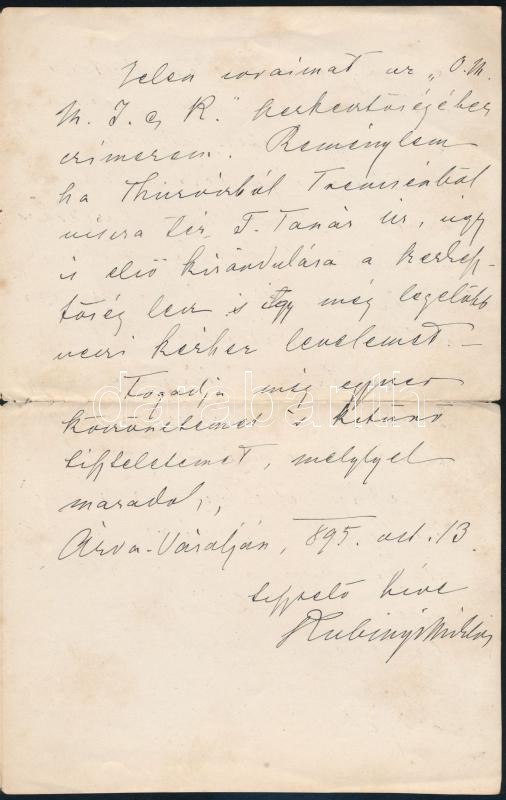 Jelen soraimat az „O. M.
M. I. és K." szerkesztőségében
czimezem. Reménylem
ha Thurócból Trencsénből
vissza tér T. Tanár úr, úgy
is első kirándulása a szerkesz-
tőség lesz is így még legelőbb
veszi kézhez levelemet. –
Fogadja még egyszer
köszönetemet is kitünő
tiszteletemet, melylyel
maradok,
Árva-Váralján, 895. oct. 13.
tisztelő híve
Kubinyi Miklós
darabanth